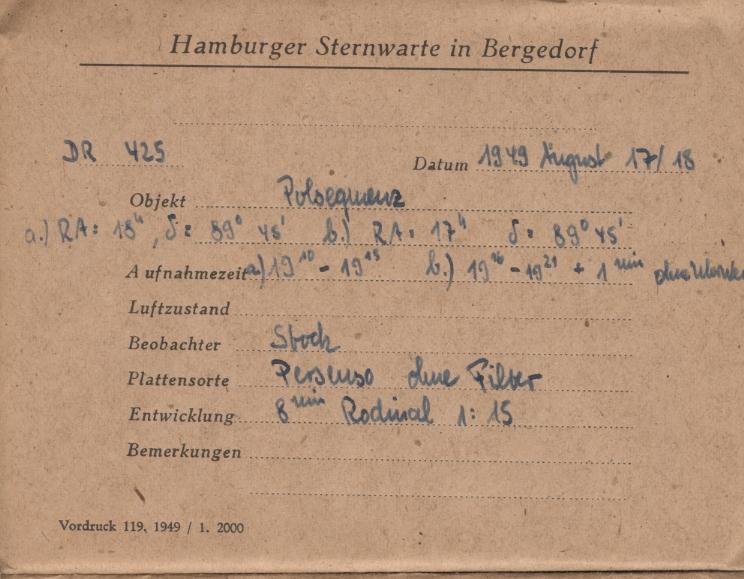 Hamburger Sternwarte in Bergedorf
DR 425 Datum 1949 August 17/18
Objekt Polsequenz
a.) RA: 18ʰ, δ: 89° 45' b.) RA: 17ʰ δ: 89° 45'
Aufnahmezeit a) 19¹⁰ - 19¹⁵ b.) 19¹⁶ - 19²¹ + 1 min ohne
Luftzustand
Beobachter Stock
Plattensorte Persenso ohne Filter
Entwicklung 8 min Rodinal 1:15
Bemerkungen
Vordruck 119. 1949 / 1. 2000